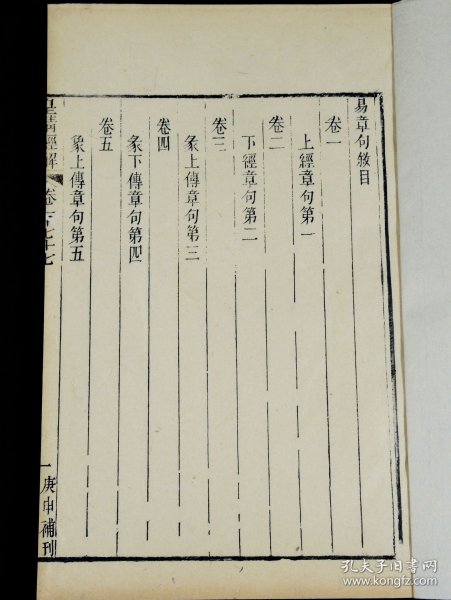 易章句敘目
卷一
上經章句第一
卷二
下經章句第二
卷三
彖上傳章句第三
卷四
彖下傳章句第四
卷五
象上傳章句第五
皇清經解
卷一千七十七
一
庚申補刊
孔夫子旧书网
www.kongfz.com